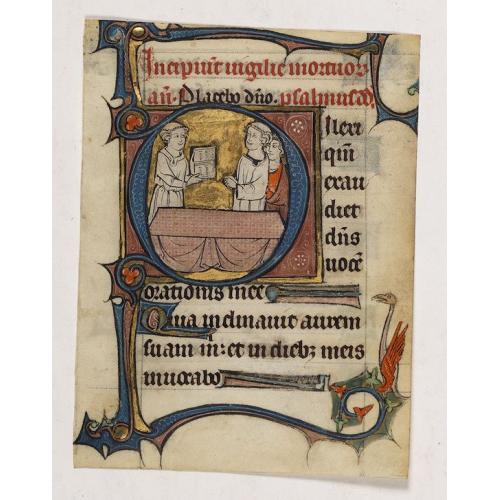 Incipiut uigilie mortuor
añ. Placebo dño. psalmus dd.
ilexi
qm̄
exau
diet
dn̄s
uocē
orationis mee
Quia inclinauit aurem
suam m: et in dieb; meis
inuocabo